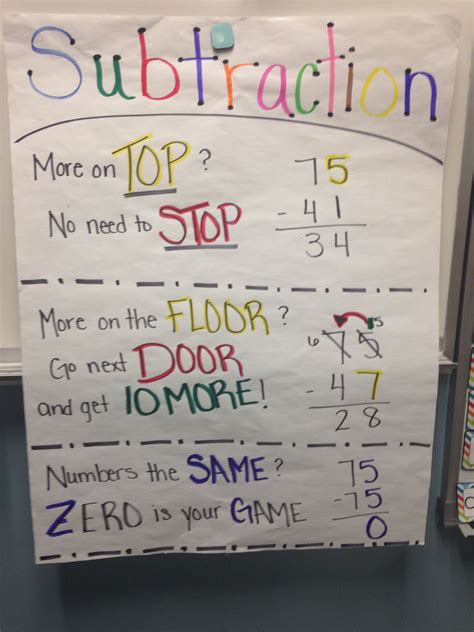 Subtraction
More on TOP?
No need to STOP
75
- 41
34
More on the FLOOR?
Go next DOOR
and get 10 MORE!
6 15
75
- 47
28
Numbers the SAME?
ZERO is your GAME
75
-75
0